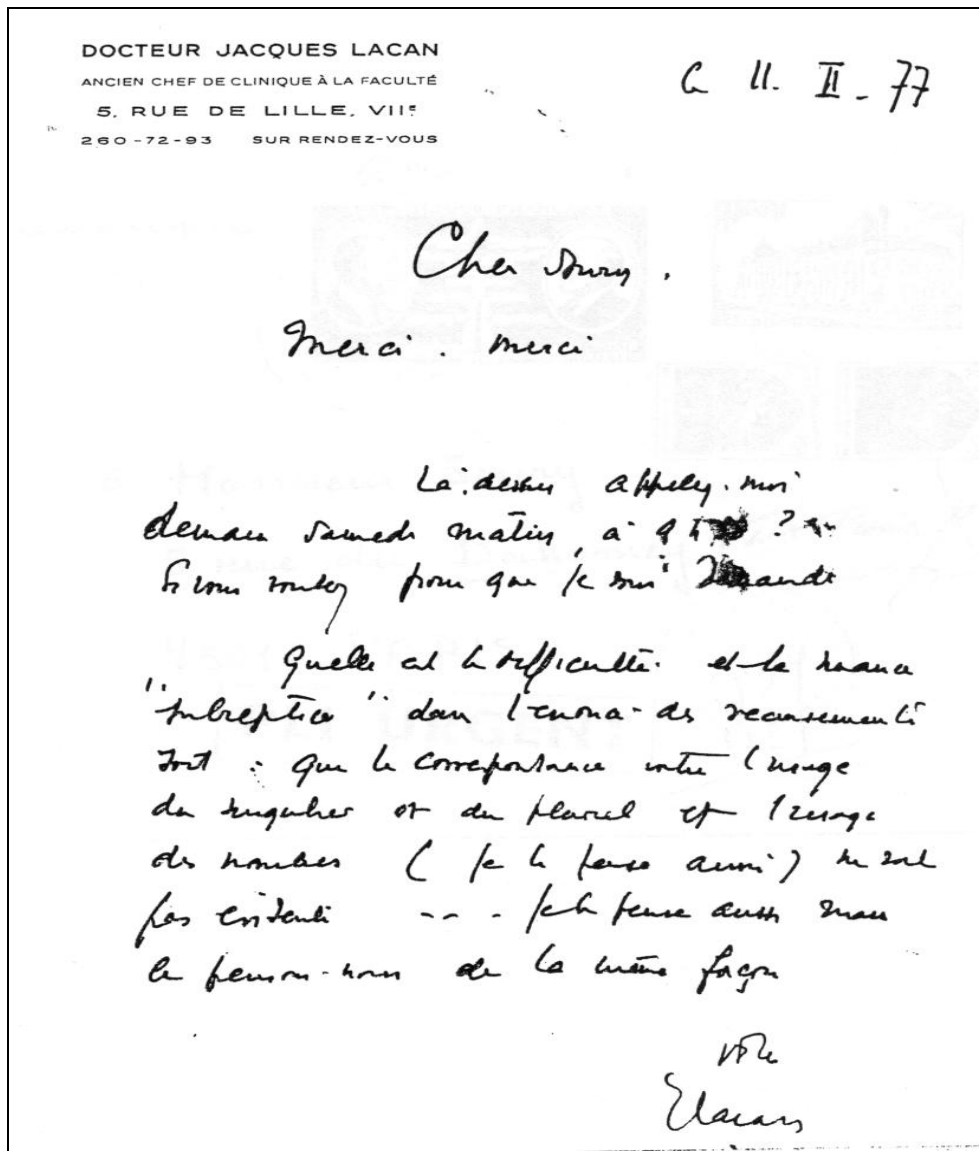 DOCTEUR JACQUES LACAN
ANCIEN CHEF DE CLINIQUE À LA FACULTÉ
5, RUE DE LILLE, VIIE
260-72-93 SUR RENDEZ-VOUS
Ce 11. II - 77
Cher Soury.
Merci. merci
Là-dessus appelez-moi
demain samedi matin, à 9 h ?
Si vous voulez pour que je vous
Quelle est la difficulté et la nuance
"subreptice" dans l'énoncé des recensements
soit : que la correspondance entre l'usage
du singulier et du pluriel et l'usage
des nombres (je le pense aussi) ne soit
pas évidente --- je le pense aussi mais
le pensons-nous de la même façon
votre
JLacan